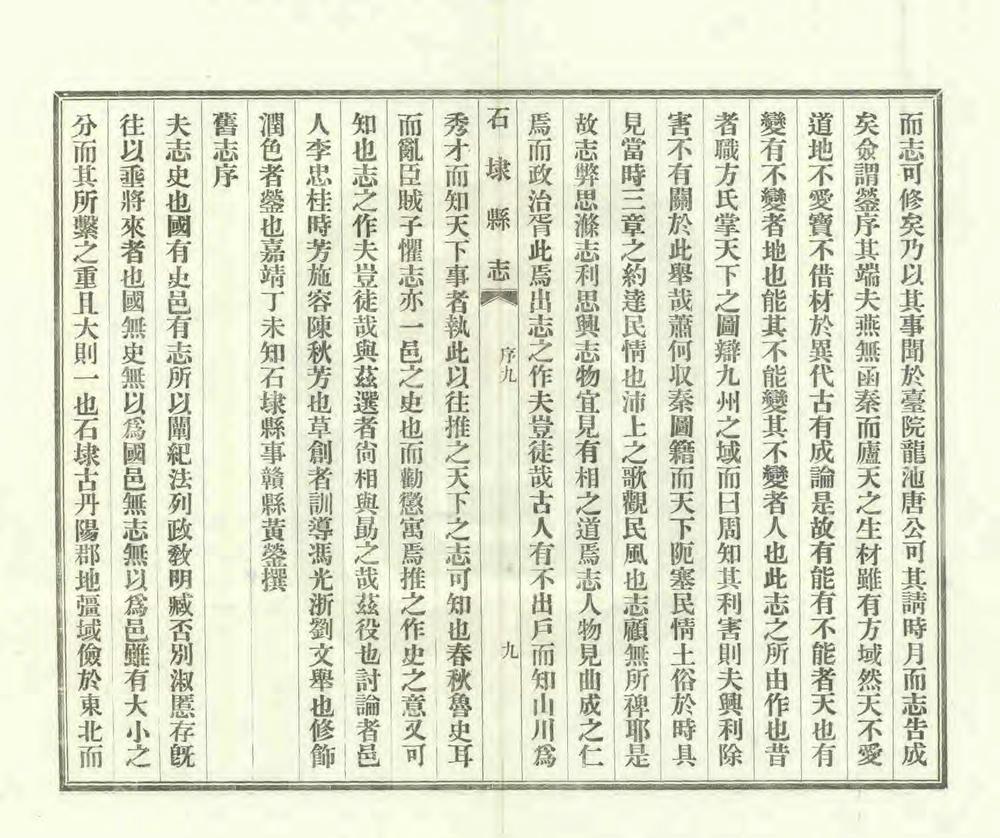 而志可修矣乃以其事聞於臺院龍池唐公可其請時月而志告成
矣僉謂蓥序其端夫燕無函秦而廬天之生材雖有方域然天不愛
道地不愛寶不借材於異代古有成論是故有能有不能者天也有
變有不變者地也能其不能變其不變者人也此志之所由作也昔
者職方氏掌天下之圖辯九州之域而曰周知其利害則夫興利除
害不有關於此舉哉蕭何収秦圖籍而天下阨塞民情土俗於時具
見當時三章之約達民情也沛上之歌觀民風也志顧無所裨耶是
故志弊思滌志利思興志物宜見有相之道焉志人物見曲成之仁
焉而政治胥此焉出志之作夫豈徒哉古人有不出戶而知山川爲
石埭縣志
序九
九
秀才而知天下事者執此以往推之天下之志可知也春秋魯史耳
而亂臣賊子懼志亦一邑之史也而勸懲寓焉推之作史之意又可
知也志之作夫豈徒哉與茲選者尙相與勗之哉茲役也討論者邑
人李忠桂時芳施容陳秋芳也草創者訓導馮光浙劉文舉也修飾
潤色者蓥也嘉靖丁未知石埭縣事贛縣黃蓥撰
舊志序
夫志史也國有史邑有志所以闡紀法列政敎明臧否別淑慝存旣
往以垂將來者也國無史無以爲國邑無志無以爲邑雖有大小之
分而其所繫之重且大則一也石埭古丹陽郡地彊域儉於東北而